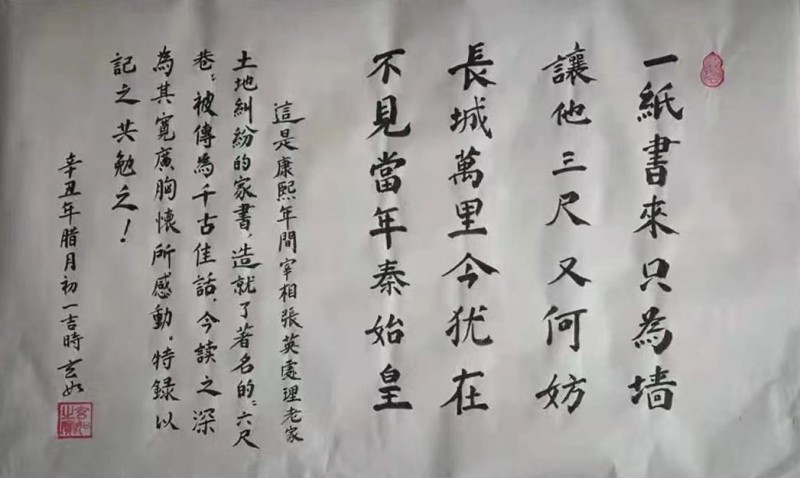 一紙書來只為墻
讓他三尺又何妨
長城萬里今犹在
不見當年秦始皇
這是康熙年間宰相張英處理老家
土地糾紛的家書，造就了著名的“六尺
巷”被傳為千古佳話，今讀之深
為其寬廣胸懷所感動，特録以
記之共勉之！
辛丑年腊月初一吉時 玄如